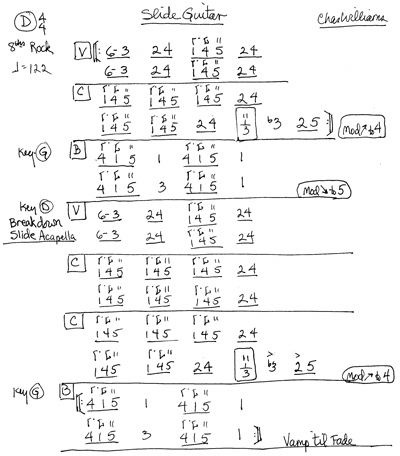 D 4/4 Slide Guitar Chas Williams
8ths Rock
♩=122
V 6-3 24 145 24
6-3 24 145 24
C 145 145 145 24
145 145 24 1/3 b3 25 mod↗ to 4
Key-G B 415 1 415 1
415 3 415 1 mod↘ to 5
Key D V 6-3 24 145 24
Breakdown
Slide Acapella 6-3 24 145 24
C 145 145 145 24
145 145 145 24
C 145 145 145 24
145 145 24 1/3 b3 25 mod↗ to 4
Key G B 415 1 415 1
415 3 415 1 Vamp til Fade